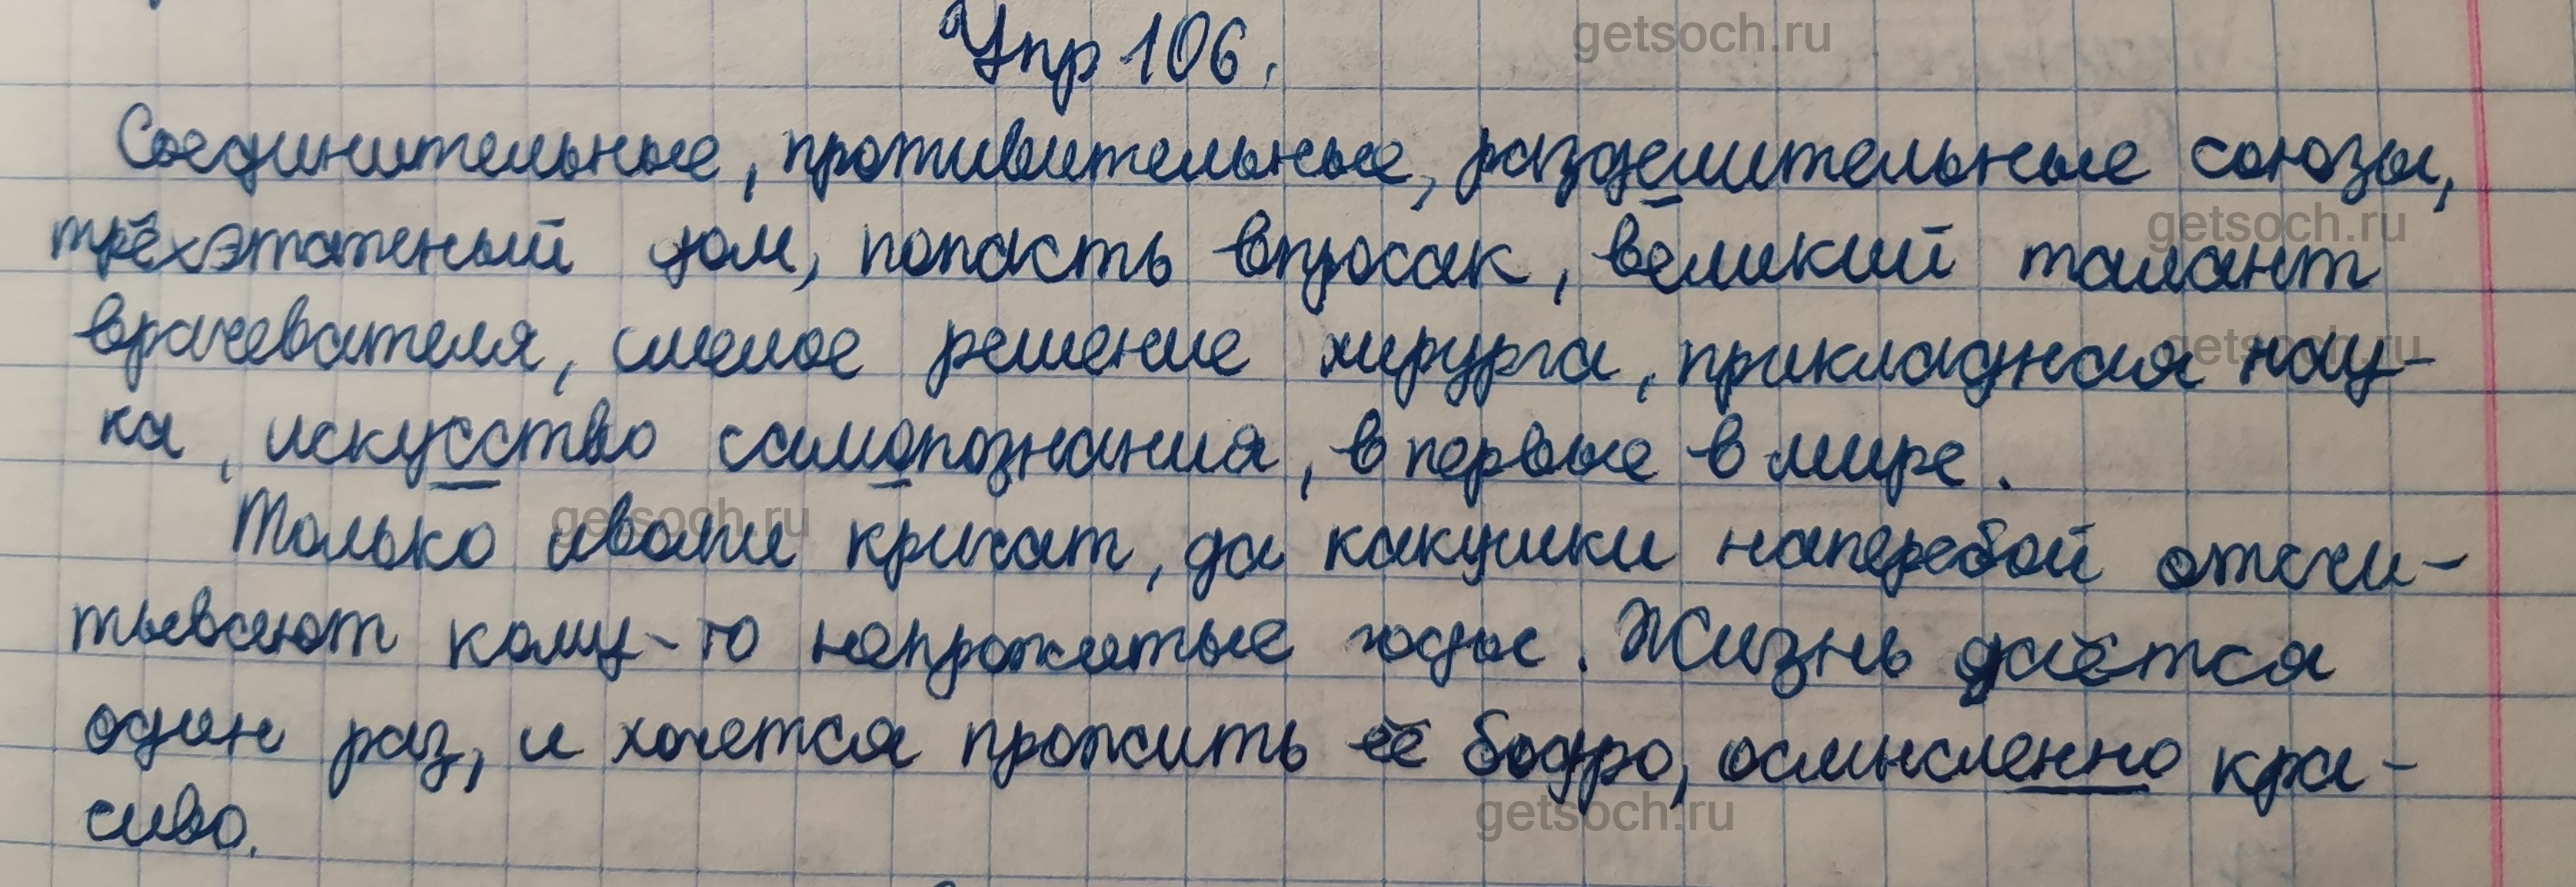 Упр 106.
getsoch.ru
Соединительные, противительные, разделительные союзы,
getsoch.ru
трёхэтажный дом, попасть впросак, великий талант
врачевателя, смелое решение хирурга, прикладная нау-
getsoch.ru
ка, искусство самопознания, в первые в мире.
getsoch.ru
Только иволги кричат, да какушки наперебой отсчи-
тывают кому-то непрожитые годы. Жизнь даётся
один раз, и хочется прожить её бодро, осмысленно кра-
getsoch.ru
сиво.